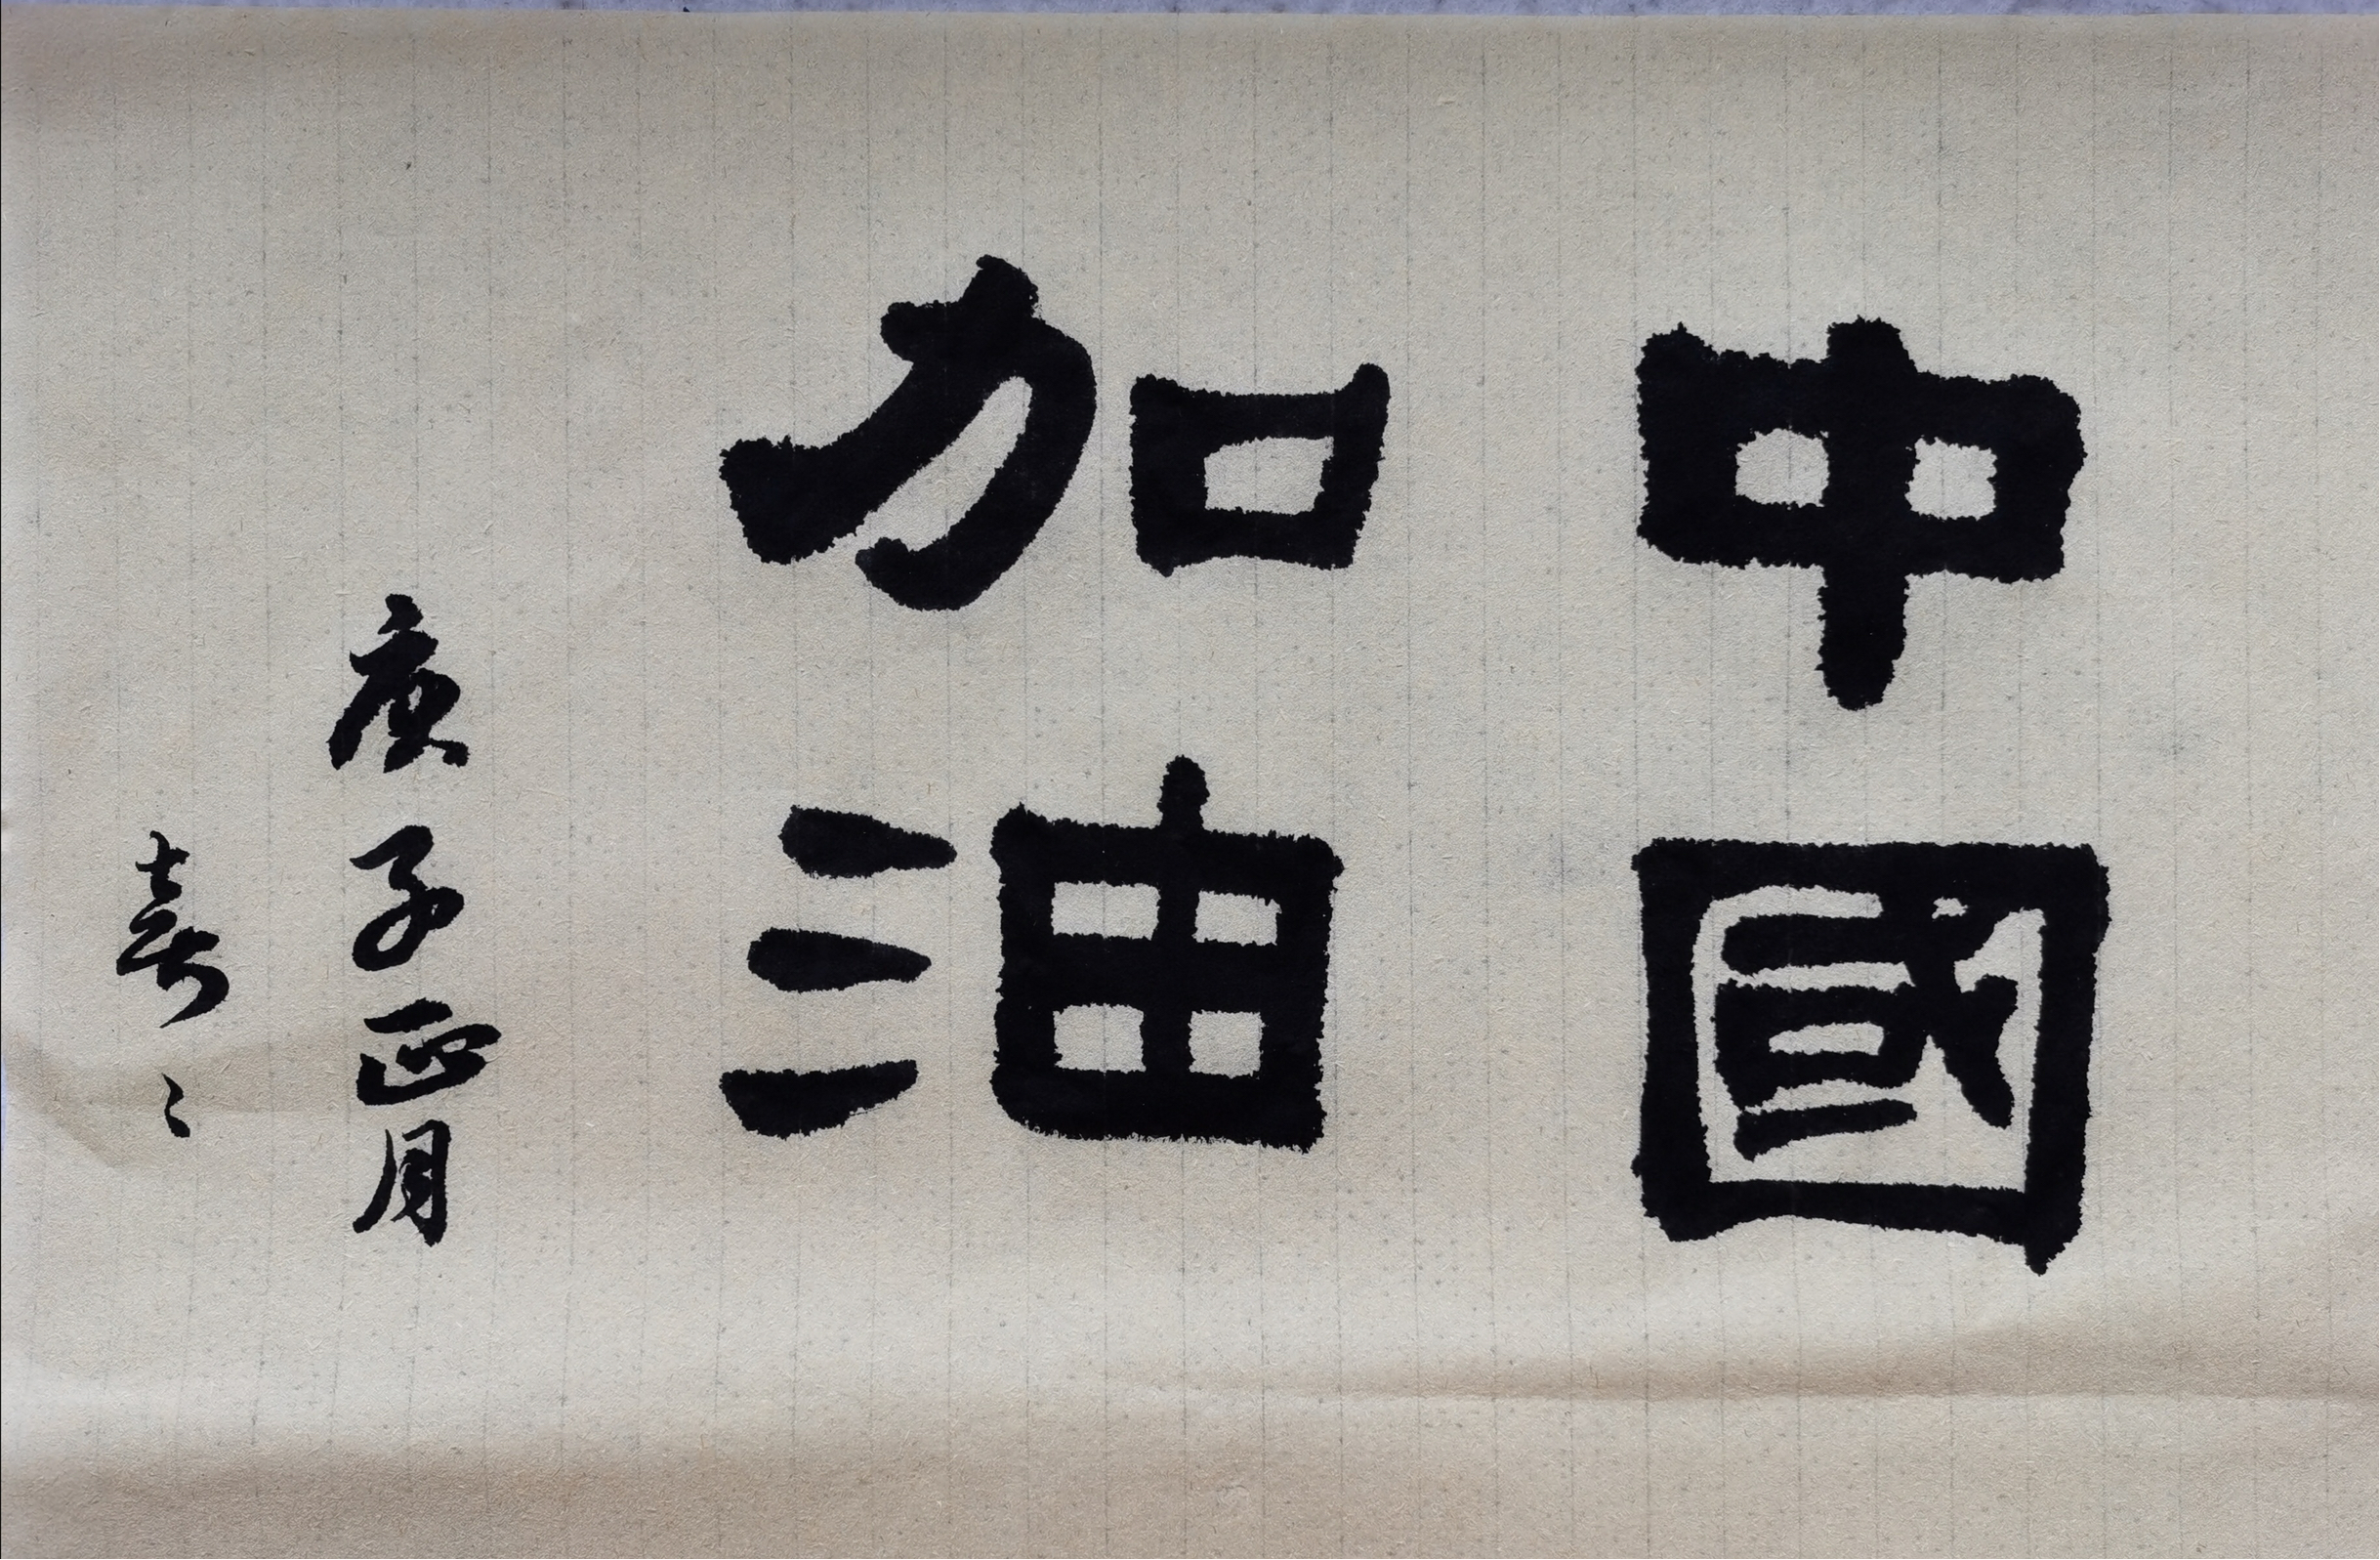 中國
加油
庚子正月